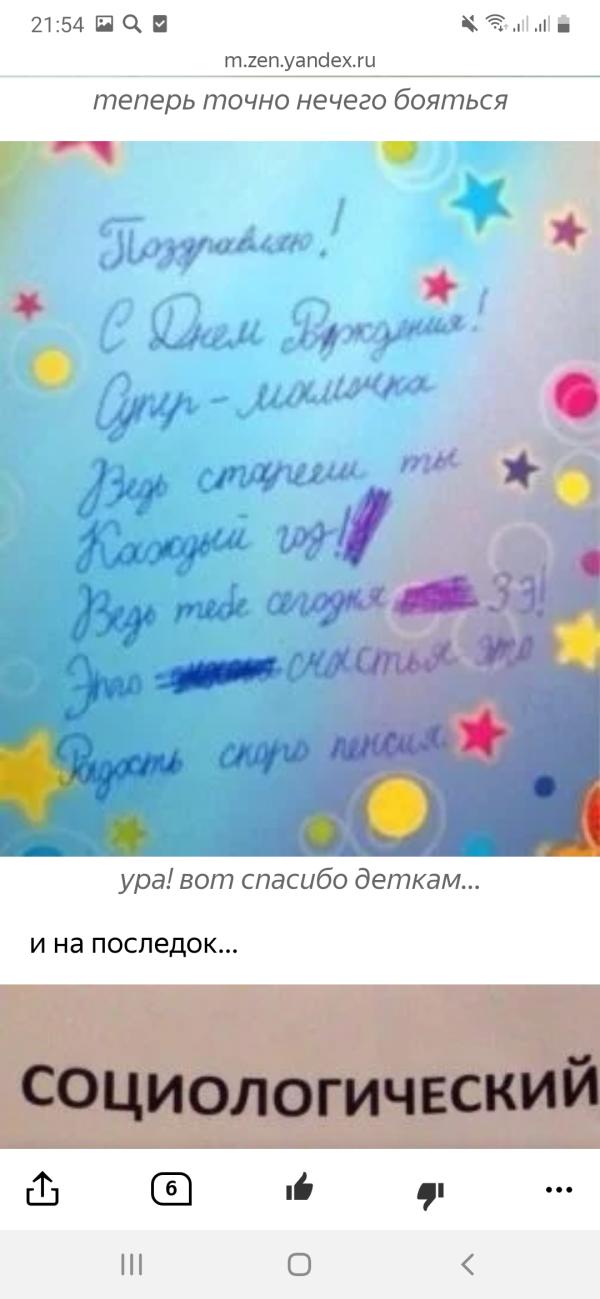 21:54
m.zen.yandex.ru
теперь точно нечего бояться
Поздравляю!
С Днем Рождения!
Супер-мамочка
Ведь старееш ты
Каждый год!
Ведь тебе сегодня 33!
Это счастья это
Радость скоро пенсия.
ура! вот спасибо деткам...
и на последок...
СОЦИОЛОГИЧЕСКИЙ
6